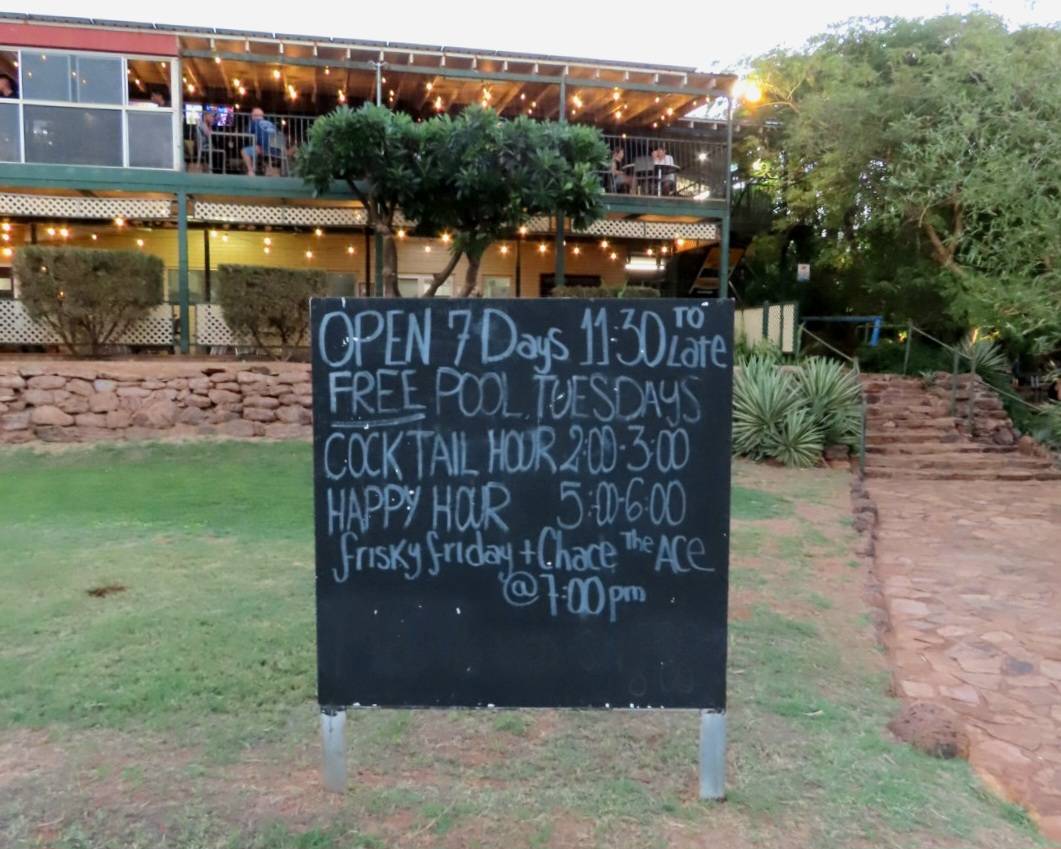 OPEN 7 Days 11:30 TO Late
FREE POOL TUESDAYS
COCKTAIL HOUR 2:00-3:00
HAPPY HOUR 5:00-6:00
frisky friday + Chace The ACE
@ 7:00 pm